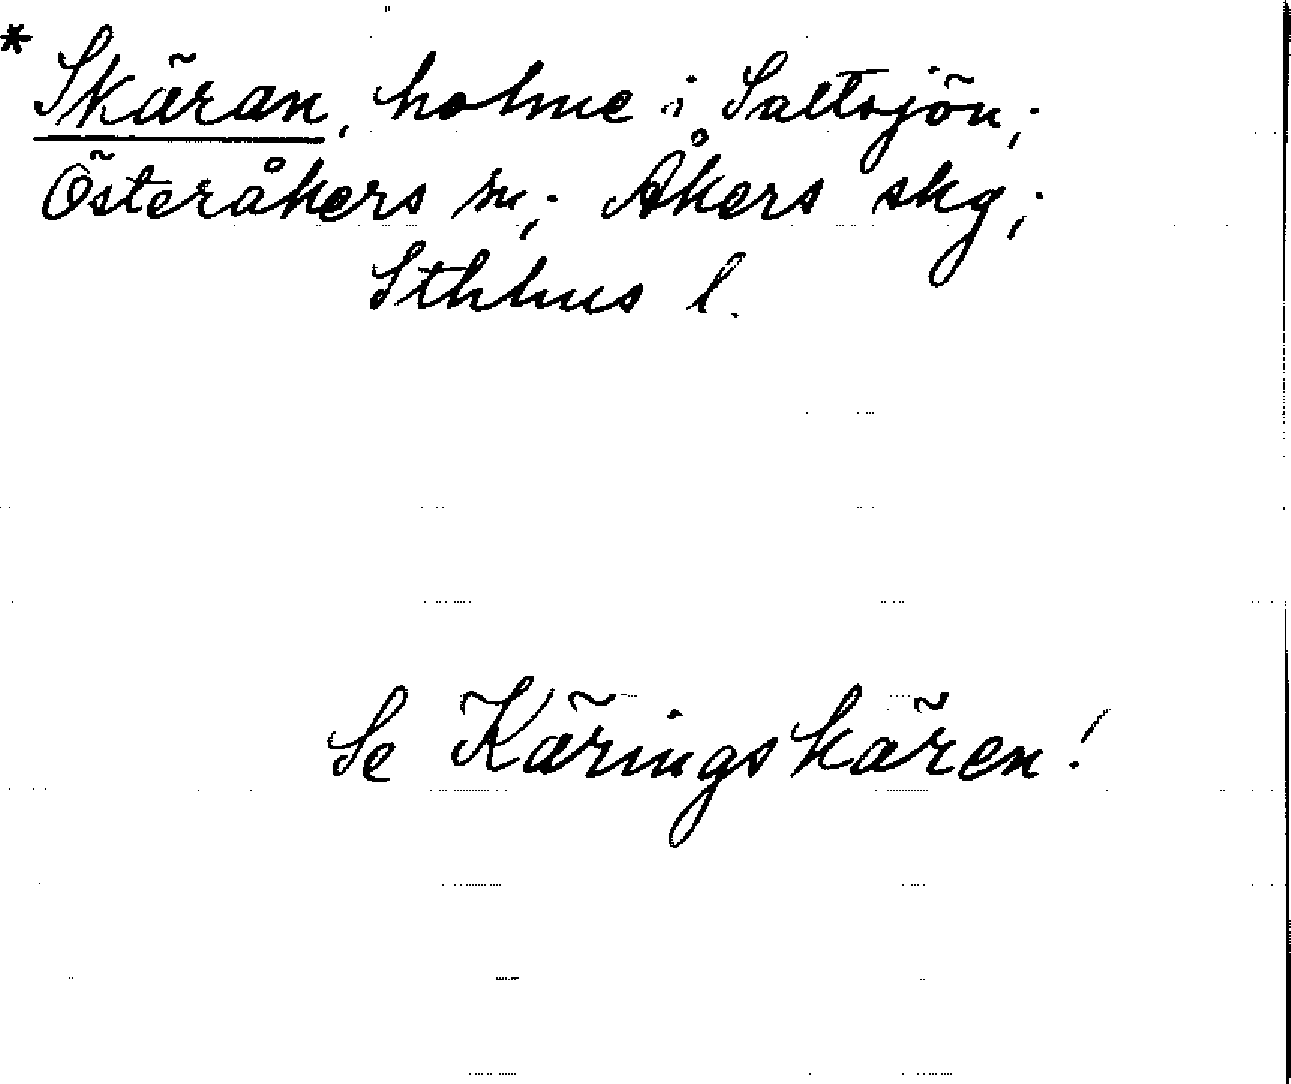 *Skären, holme i Saltsjön;
Österåkers sn; Åkers skg;
Sthlms l.
Se Käringskären!